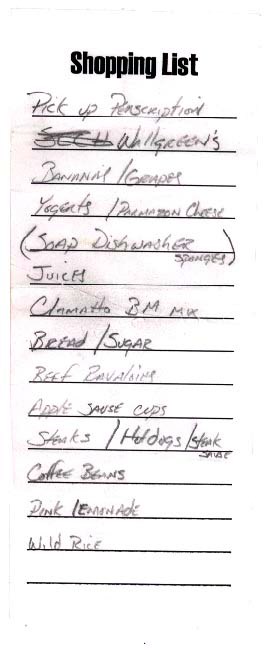 Shopping List
Pick up Perscription
Wallgreen's
Bananas / Grapes
Yogerts / Parmazon Cheese
(Soap Dishwasher
sponges)
Juices
Clamatto BM mix
Bread / Sugar
Beef
Apple sause cups
Steaks / Hotdogs / steak
sause
Coffee Beans
Pink lemonade
Wild Rice